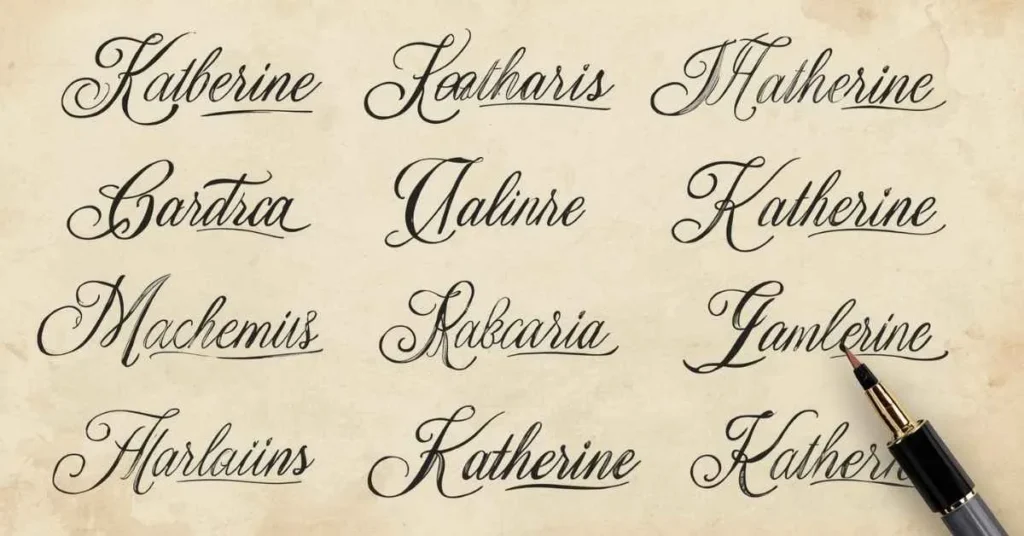 Katberine Keatharis Hatherine
Gardrca Valinre Katherine
Machemiis Rabcaria Jamlerine
Harlaiins Katherine Kathern